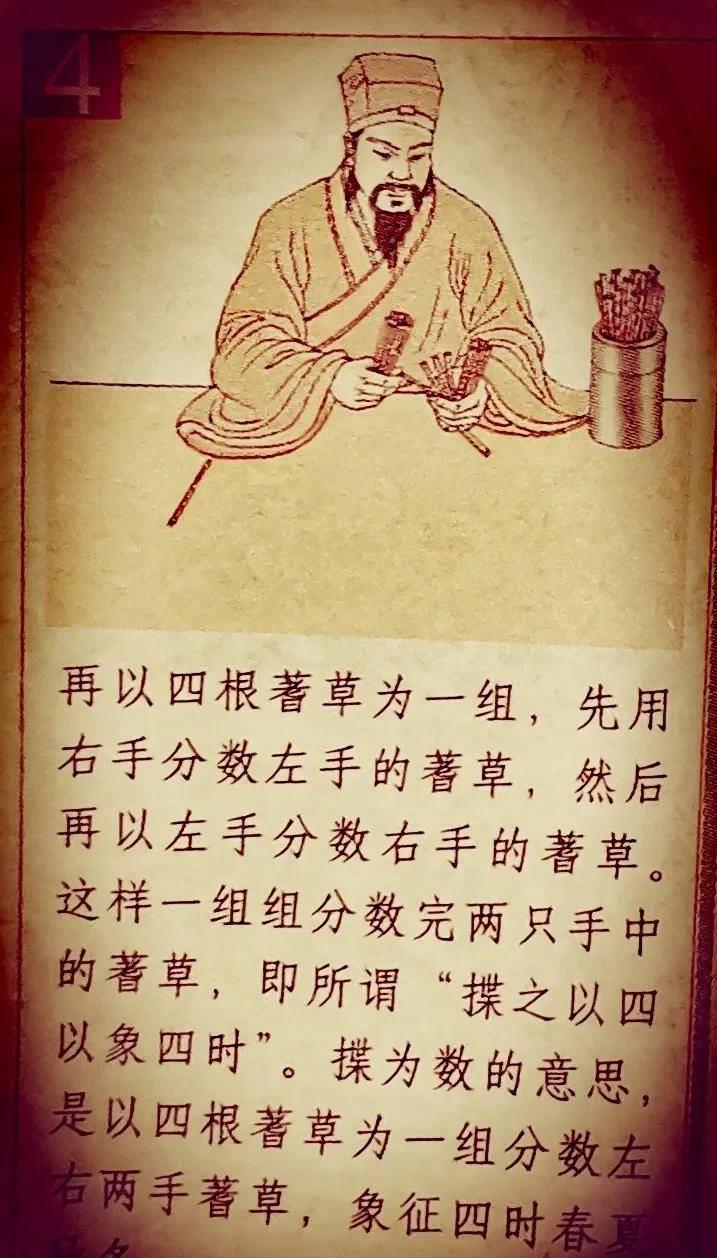 4
再以四根蓍草为一组，先用
右手分数左手的蓍草，然后
再以左手分数右手的蓍草。
这样一组组分数完两只手中
的蓍草，即所谓“揲之以四
以象四时”。揲为数的意思，
是以四根蓍草为一组分数左
右两手蓍草，象征四时春夏